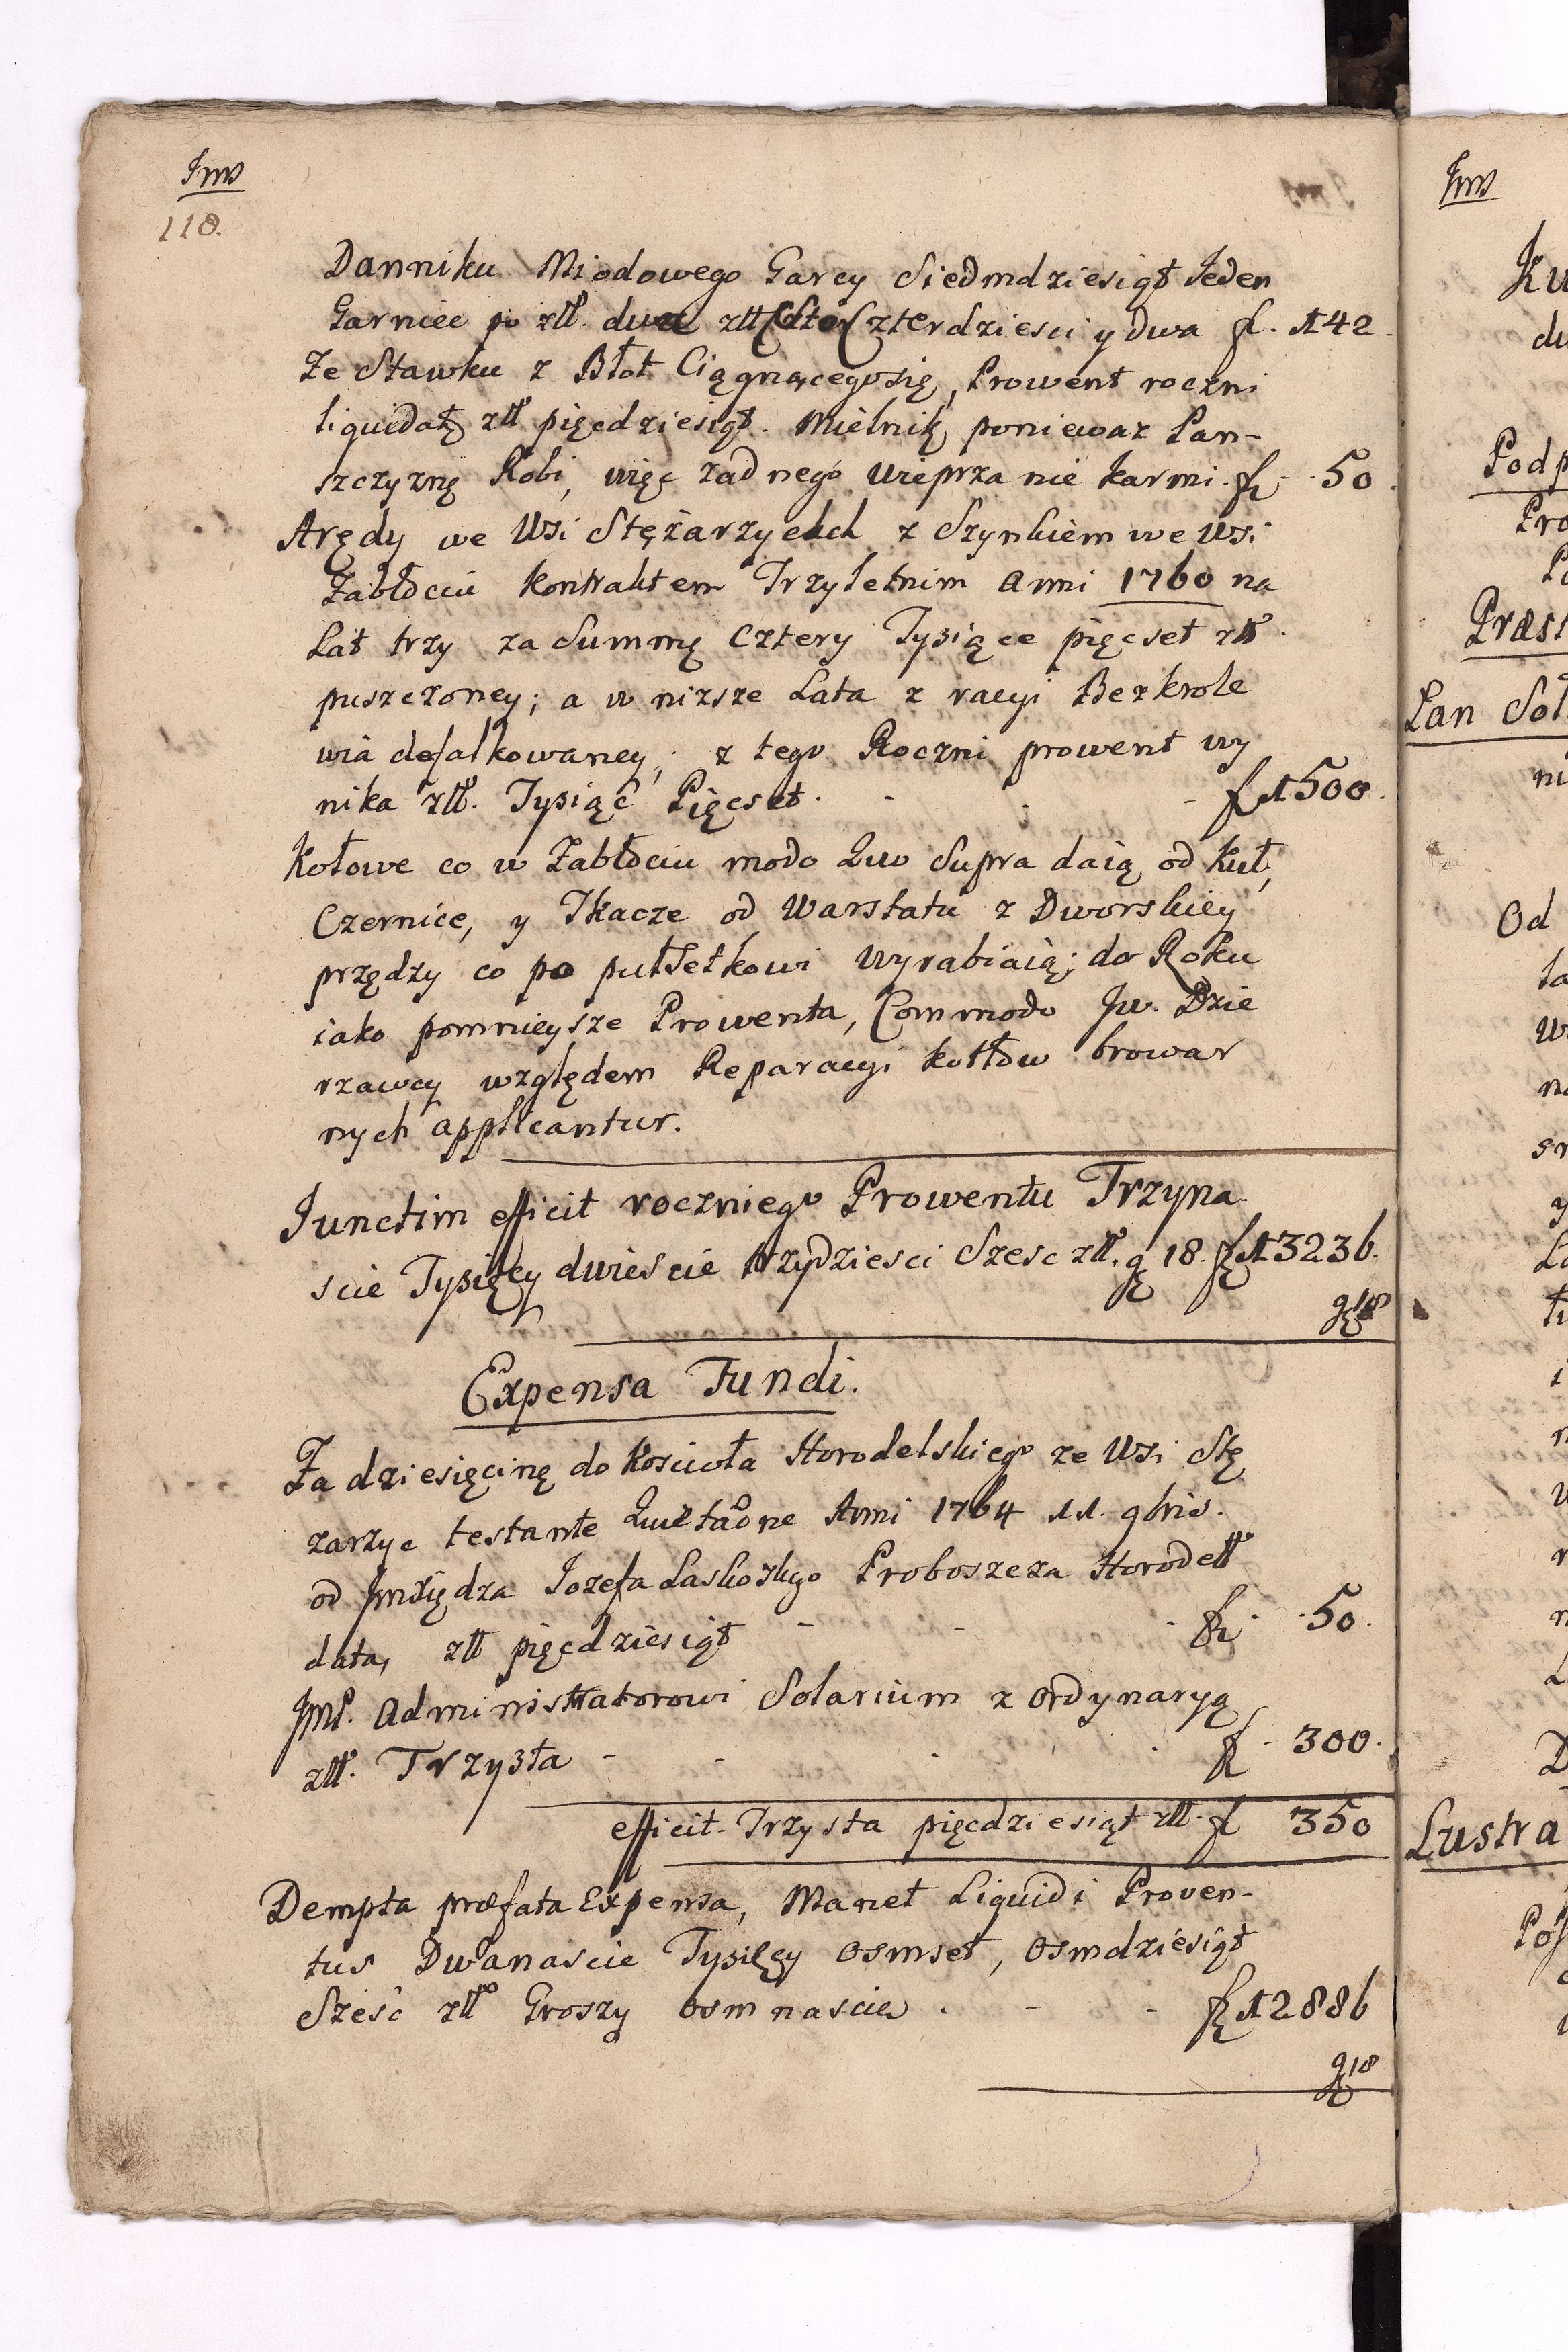 Jmś
118.
Danniku Miodowego Garcy Siedmdziesiąt Jeden
Garniec po złł. dwa złł Sto Czterdziesci y dwa fl. 142
Ze Stawku z Błot Ciągnącego się, Prowent roczni
liquidatę złł pięcdziesiąt. Mielnik poniewaz Pan-
szczyznę Robi, więc zadnego wieprza nie karmi fl 50.
Arędy we Wsi Stężarzycach z Szynkiem we Wsi
Zabłociu kontraktem Trzyletnim Anni 1760 na
Lat trzy za Summę Cztery Tysiące pięcset złł
puszczoney; a w nizsze Lata z racyi Bezkrole
wia defalkowaney, z tego Roczni prowent wy
nika złł. Tysiąc Pięcset. fl 1500.
Kotowe co w Zabłociu modo quo Supra daią od kuł,
Czernice, y Tkacze od Warstatu z Dworskiey
przędzy co po pułSetkowi wyrabiaią; do Roku
iako pomnieysze Prowenta, Commodo Jw. Dzie
rzawcy względem Reparacyi kotłow browar
nych applicantur.
Junctim efficit roczniego Prowentu Trzyna
scie Tysięcy dwiescie trzydziesci Szesc złł. gr 18. fl 13236.
gr 18
Expensa Fundi.
Za dziesięcinę do Koscioła Horodelskiego ze Wsi Stę
zarzyc testante Quietaōne Anni 1764 11. 9bris.
od Jmxiędza Jozefa Laskoskigo Proboszcza Horodell
data, złł pięcdziesiąt fl 50.
JmP. Administratorowi Solarium z Ordynaryą
złł. Trzysta fl 300.
efficit. Trzysta pięcdziesiąt złł. fl 350
Dempta præfata Expensa, Manet Liquidi Proven-
tus Dwanascie Tysięcy osmset, osmdziesiąt
Sześć złł Groszy osmnascie fl 12886
gr 18
Jmś
Ku
du
Podp
Pro
Præst
Łan Soł
ni
Od
Lustra